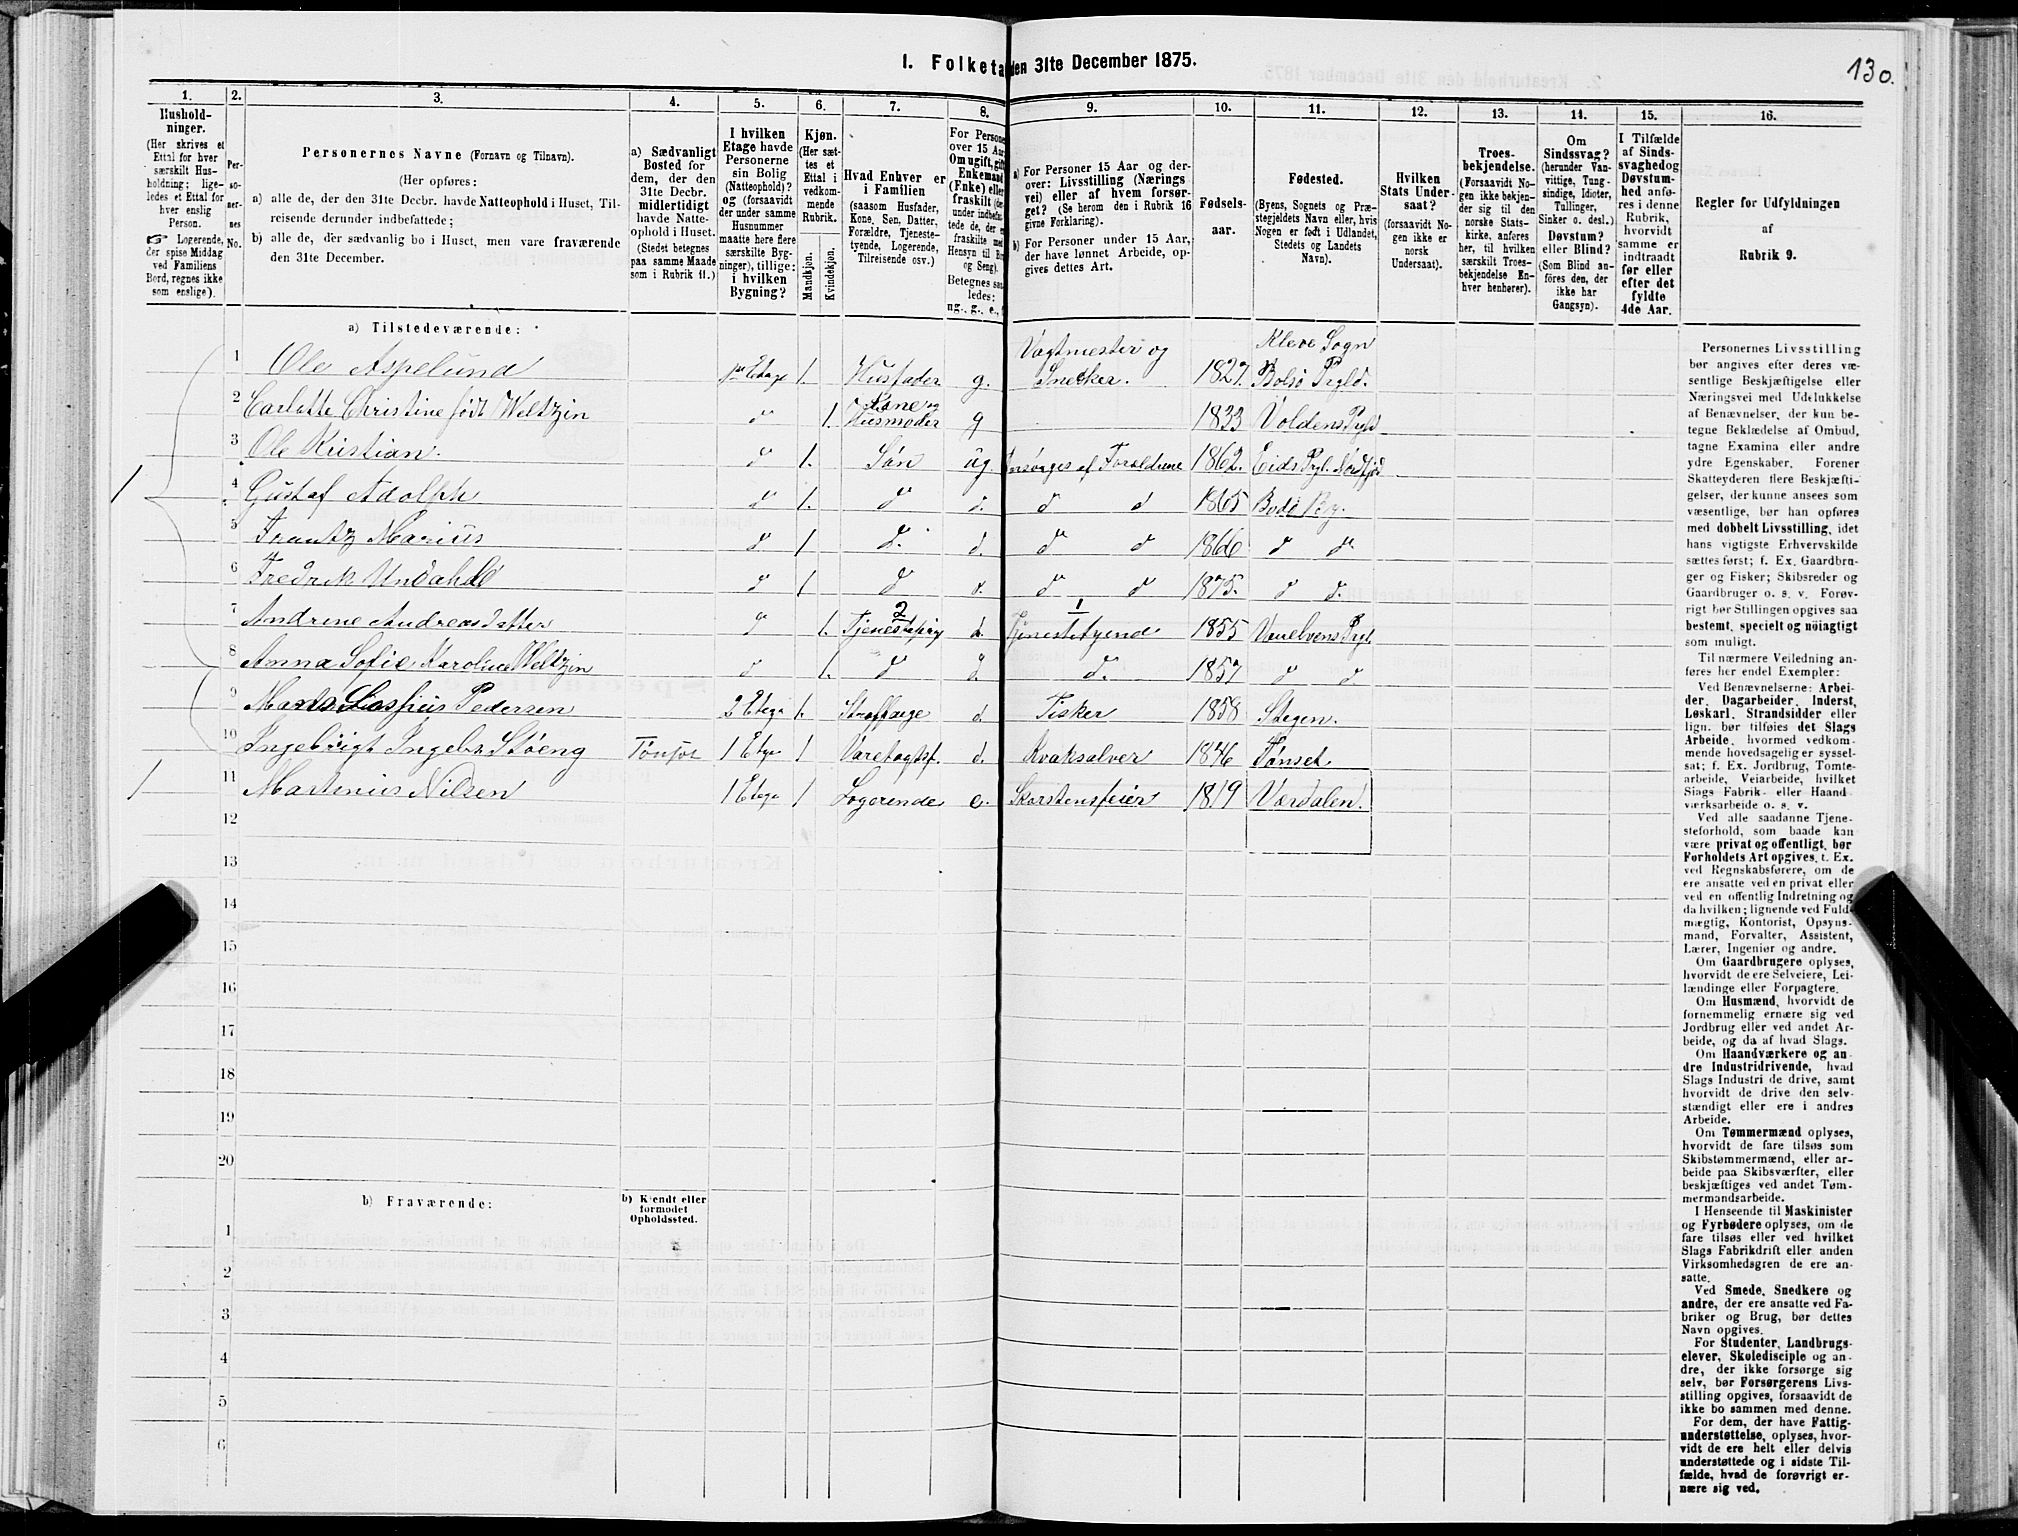 130.
I. Folketa den 31te December 1875.
1. 2. 3. 4. 5. 6. 7. 8. 9. 10. 11. 12. 13. 14. 15. 16.
Hushold-
ninger.
(Her skrives et
Ettal for hver
særskilt Hus-
holdning; lige-
ledes et Ettal for
hver enslig
Person.
☞ Logerende,
der spise Middag
ved Familiens
Bord, regnes ikke
som enslige).
Per-
so-
ner-
nes
No.
Personernes Navne (Fornavn og Tilnavn).
(Her opføres:
a) alle de, der den 31te Decbr. havde Natteophold i Huset, Til-
reisende derunder indbefattede;
b) alle de, der sædvanlig bo i Huset, men vare fraværende
den 31te December.
a) Sædvanligt
Bosted for
dem, der den
31te Decbr.
midlertidigt
havde Natte-
ophold i Huset.
(Stedet betegnes
paa samme Maade
som i Rubrik 11.)
I hvilken
Etage havde
Personerne
sin Bolig
(Natteophold)?
og (forsaavidt
der under samme
Husnummer
maatte høre flere
særskilte Byg-
ninger), tillige:
i hvilken
Bygning?
Kjøn.
(Her sæt-
tes et
Ettal i
vedkom-
mende
Rubrik.
Mandkjøn.
Kvindekjøn.
Hvad Enhver er
i Familien
(saasom Husfader,
Kone, Søn, Datter,
Forældre, Tjeneste-
tyende, Logerende,
Tilreisende osv.)
For Persone
over 15 Aar
Om ugift, gift
Enkemand
(Enke) eller
fraskilt (de
under indbefat-
tede de, der e
fraskilte med
Hensyn til Bo
og Seng).
Betegnes saa-
ledes:
ug., g., e.,
a) For Personer 15 Aar og der-
over: Livsstilling (Nærings
vei) eller af hvem forsør-
get? (Se herom den i Rubrik 16
givne Forklaring).
b) For Personer under 15 Aar,
der have lønnet Arbeide, op-
gives dettes Art.
Fødsels-
aar.
Fødested.
(Byens, Sognets og Præ-
stegjeldets Navn eller, hvis
Nogen er født i Udlandet,
Stedets og Landets
Navn).
Hvilken
Stats Under-
saat?
(forsaavidt No-
gen ikke er
norsk
Undersaat).
Troes-
bekjendelse.
(Forsaavidt No-
gen ikke bekjen-
der sig til den
norske Stats-
kirke, anføres
her, til hvilken
særskilt Troes-
bekjendelse En-
hver henhører).
Om
Sindssvag?
(herunder Van-
vittige, Tung-
sindige, Idioter,
Tullinger,
Sinker o. desl.)
Døvstum?
eller Blind?
(Som Blind an-
føres den, der
ikke har
Gangsyn).
I Tilfælde
af Sinds-
svaghed og
Døvstum-
hed anfø-
res i denne
Rubrik,
hvorvidt
samme er
indtraadt
før eller
efter det
fyldte
4de Aar.
Regler for Udfyldningen
af
Rubrik 9.
a) Tilstedeværende:
Vagtmester og Kleve Sogn
1 Ole Aspelund 1ste Etage 1. Husfader g. Snedker. 1827. Bolsø Prgld.
2 Carlotte Christine født Weltzin d 1. Kone og Husmoder g 1833 Voldens Prgld
3 Ole Kristian. d 1. Søn ug Forsørges af Forældrene 1862. Eids Prgl. Nordfjord
1 4 Gustaf Adolph d 1. d d. d d 1865 Bodø By.
5 Frantz Marius d 1 d. d. d d 1866 d d
6 Fredrik Undahl d 1 d d. d d 1875. d d.
2 1
7 Andrine Andreasdatter d 1. d. Tjenestetyend 1855 Vanelvens Prgl.
8 Anna Sofie Karoline Weltzin d 1. d d. d. 1857 d d
9 Pedersen 2 Etage 1. Straffange d. Fisker 1858 Stegen.
10 Ingebrigt Ingebr. Støeng Tönset 1 Etage 1 Varetægtsf. d. Kvaksalver 1846 Tönset
1 11 Martinius Nilsen 1 Etage 1 Logerende e. Skorstensfeier 1819 Værdalen.
12
13
14
15
16
17
18
19
20
b) Fraværende:
b) Kjendt eller
formodet
Opholdssted.
1
2
3
4
5
6
Personernes Livsstilling
bør angives efter deres væ-
sentlige Beskjæftigelse eller
Næringsvei med Udelukkelse
af Benævnelser, der kun be-
tegne Beklædelse af Ombud,
tagne Examina eller andre
ydre Egenskaber. Forener
Skatteyderen flere Beskjæfti-
gelser, der kunne ansees som
væsentlige, bør han opføres
med dobbelt Livsstilling, idet
hans vigtigste Erhvervskilde
sættes først; f. Ex. Gaardbru-
ger og Fisker; Skibsreder og
Gaardbruger o. s. v. Forøv-
rigt bør Stillingen opgives saa
bestemt, specielt og nöiagtigt
som muligt.
Til nærmere Veiledning an-
føres her endel Exempler:
Ved Benævnelserne: Arbei-
der, Dagarbeider, Inderst,
Løskarl, Strandsidder eller
lign. bør tilføies det Slags
Arbeide, hvormed vedkom-
mende hovedsagelig er syssel-
sat; f. Ex. Jordbrug, Tomte-
arbeide, Veiarbeide, hvilket
Slags Fabrik- eller Haand
værksarbeide o. s. v.
Ved alle saadanne Tjene-
steforhold, som baade kan
være privat og offentligt, bør
Forholdets Art opgives, t. Ex.
ved Regnskabsførere, om de
ere ansatte ved en privat eller
ved en offentlig Indretning og
da hvilken; lignende ved Fuld-
mægtig, Kontorist, Opsyns-
mand, Forvalter, Assistent,
Lærer, Ingeniør og andre.
Om Gaardbrugere oplyses,
hvorvidt de ere Selveiere, Lei-
lændinge eller Forpagtere.
Om Husmænd, hvorvidt de
fornemmelig ernære sig ved
Jordbrug eller ved andet Ar-
beide, og da af hvad Slags.
Om Haandværkere og an-
dre Industridrivende, hvad
Slags Industri de drive, samt
hvorvidt de drive den selv-
stændigt eller ere i andres
Arbeide.
Om Tømmermænd oplyses,
hvorvidt de fare tilsøs som
Skibstømmermænd, eller ar-
beide paa Skibsværfter, eller
beskjæftiges ved andet Tøm-
mermandsarbeide.
I Henseende til Maskinister
og Fyrbødere oplyses, om de
fare tilsøs eller ved hvilket
Slags Fabrikdrift eller anden
Virksomhedsgren de ere an-
satte.
Ved Smede, Snedkere og
andre, der ere ansatte ved Fa-
briker og Brug, bør dettes
Navn opgives.
For Studenter, Landbrugs-
elever, Skoledisciple og an-
dre, der ikke forsørge sig
selv, bør Forsørgerens Livs-
stilling opgives, forsaavidt de
ikke bo sammen med denne.
For dem, der have Fattig-
understøttelse, oplyses, hvor-
vidt de ere helt eller delvis
understøttede og i sidste Til-
fælde, hvad de forøvrigt er-
nære sig ved.